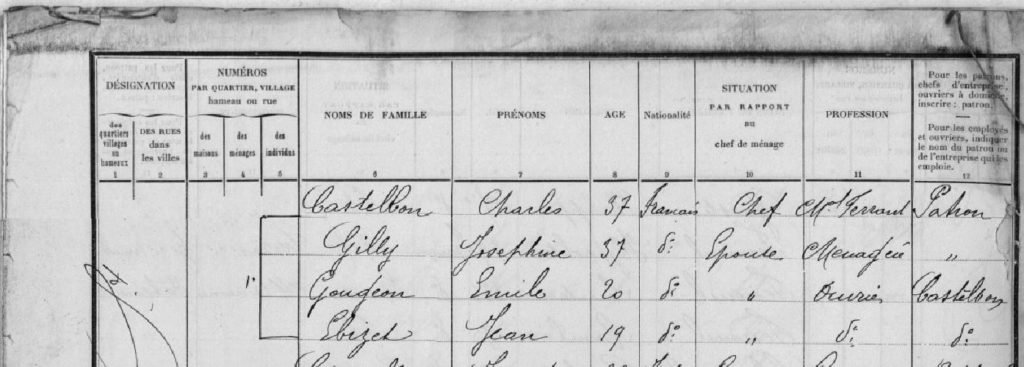 DÉSIGNATION
NUMÉROS
PAR QUARTIER, VILLAGE
hameau ou rue
des quartiers villages ou hameaux
DES RUES dans les villes
des maisons
des ménages
des individus
NOMS DE FAMILLE
PRÉNOMS
AGE
Nationalité
SITUATION
PAR RAPPORT
au
chef de ménage
PROFESSION
Pour les patrons,
chefs d'entreprise,
ouvriers à domicile,
inscrire : patron.
Pour les employés
et ouvriers, indiquer
le nom du patron ou
de l'entreprise qui les
emploie.
1 2 3 4 5 6 7 8 9 10 11 12
Castelbon Charles 37 Français Chef Mal Ferrant Patron
Gilly Josephine 37 d° Epouse Menagère "
Goudeon Emile 20 d° " Ouvrier Castelbon
Ebizet Jean 19 d° " d° d°